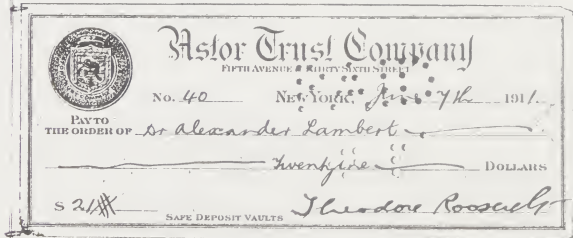 Astor Trust Company
FIFTH AVENUE & THIRTY SIXTH STREET
No. 40 NEW YORK, June 7th 1911.
PAY TO
THE ORDER OF Dr Alexander Lambert
DOLLARS
$
SAFE DEPOSIT VAULTS Theodore Roosevelt